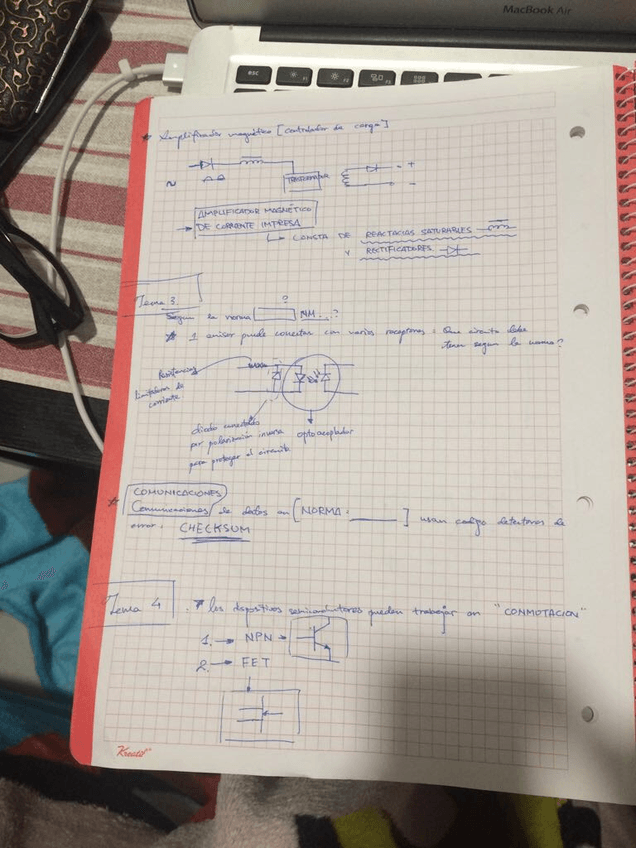 MacBook Air
esc
* Amplificador magnético [controlador de carga]
~
TRANSFORMADOR
+
-
→ AMPLIFICADOR MAGNÉTICO
DE CORRIENTE IMPRESA
↳ CONSTA DE REACTACIAS SATURABLES
Y RECTIFICADORES
Tema 3
?
Según la norma NM...?
* 1 emisor puede conectar con varios receptores. Que circuito debe
tener según la norma?
Resistencias
limitadoras de
corriente
diodo conectado
por polarización inversa
para proteger el circuito
optoacoplador
* COMUNICACIONES
Comunicaciones de datos en [NORMA. ______] usan codigo detectores de
error. CHECKSUM
Tema 4
los dispositivos semiconductores pueden trabajar en "CONMOTACION"
1. → NPN →
2. → FET
Kreatif